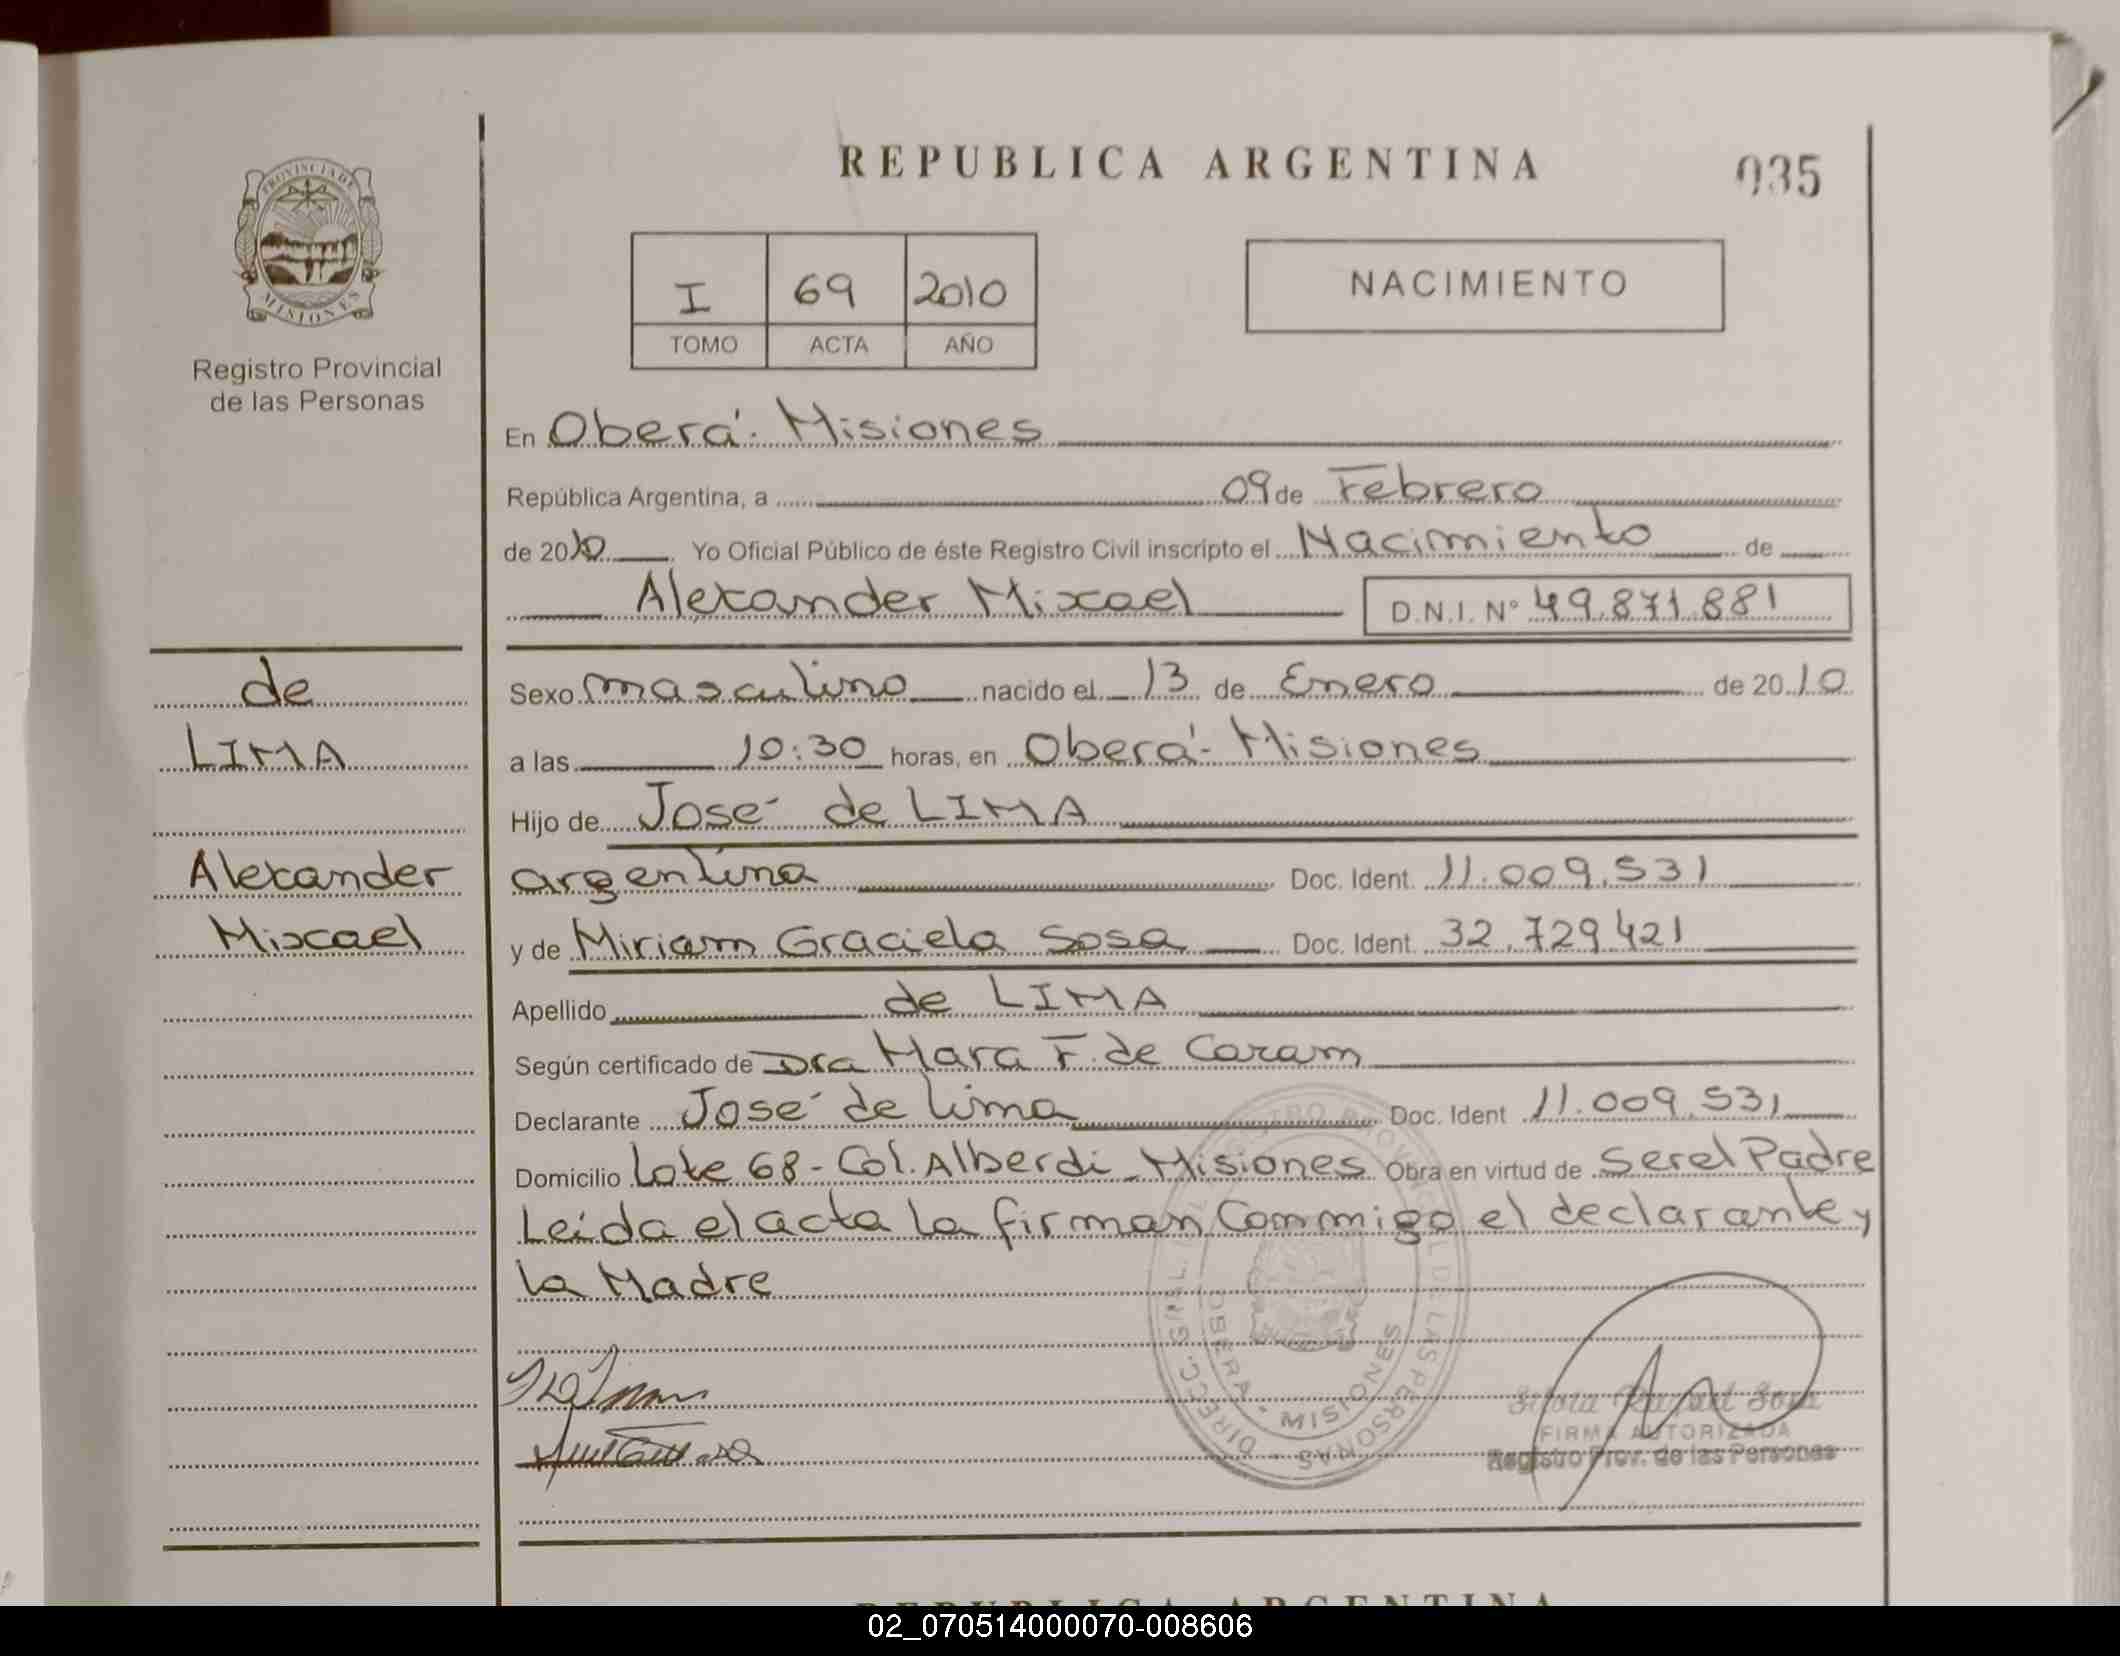 PROVINCIA DE
MISIONES
Registro Provincial
de las Personas
de
LIMA
Alexander
Mixcael
REPUBLICA ARGENTINA
035
I 69 2010
TOMO ACTA AÑO
NACIMIENTO
En Oberá - Misiones
República Argentina, a 09 de Febrero
de 2010 Yo Oficial Público de éste Registro Civil inscripto el Nacimiento de
Alexander Mixcael D.N.I. N° 49.871.881
Sexo masculino nacido el 13 de Enero de 2010
a las 10:30 horas, en Oberá - Misiones
Hijo de José de LIMA
argentina Doc. Ident. 11.009.531
y de Miriam Graciela Sosa Doc. Ident. 32.729.421
Apellido de LIMA
Según certificado de Dra Mara F. de Caram
Declarante José de Lima Doc. Ident 11.009.531
Domicilio Lote 68 - Col. Alberdi - Misiones Obra en virtud de Ser el Padre
Leída el acta la firman Commigo el declarante y
la Madre
DIRECC. GRAL. DEL REGISTRO PROVINCIAL DE LAS PERSONAS
OBERA - MISIONES
FIRMA AUTORIZADA
Registro Prov. de las Personas
REPUBLICA ARGENTINA
02_070514000070-008606